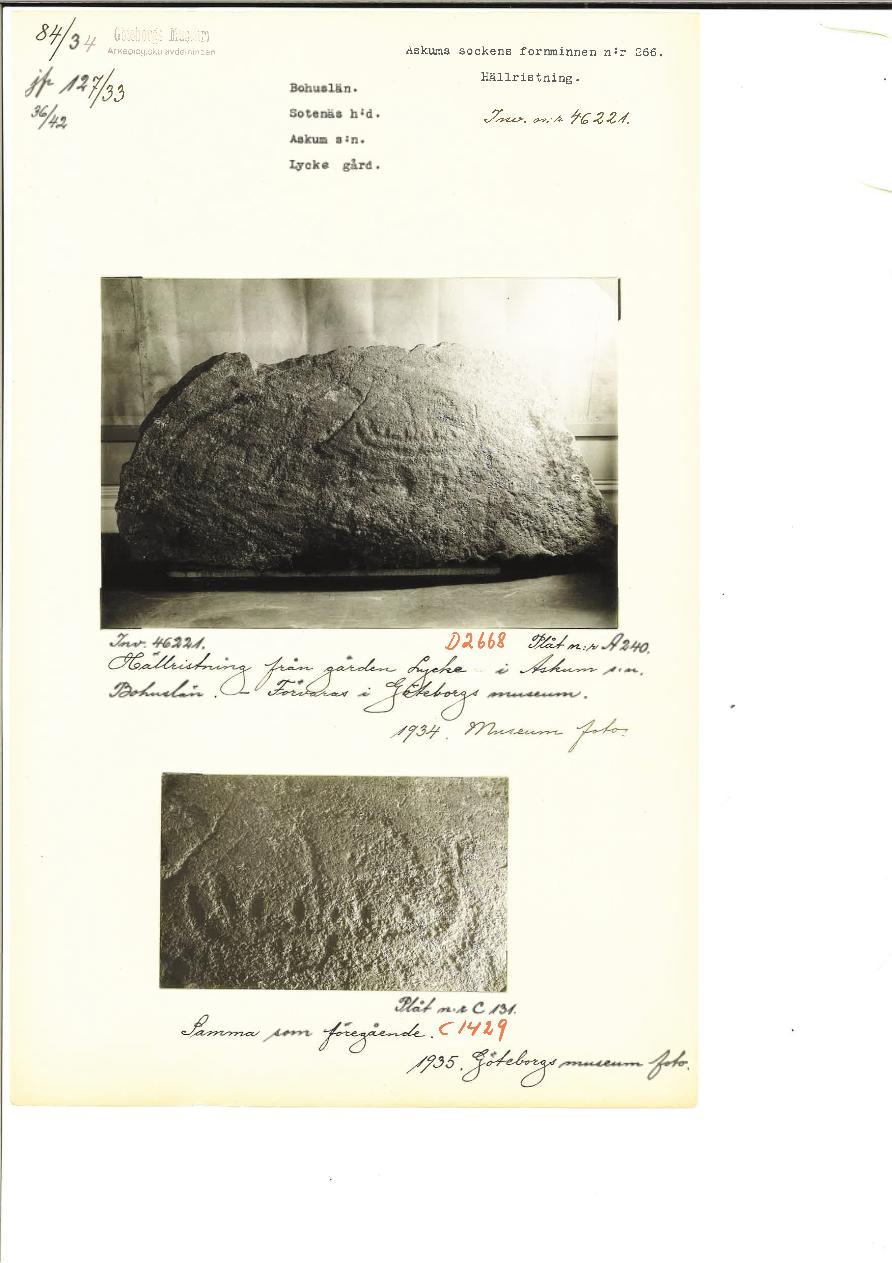 84/34 Göteborgs Museum
Arkeologiska avdelningen
jfr 127/33
36/42
Askums sockens fornminnen n:r 266.
Hällristning.
Inv. n:r 46221.
Bohuslän.
Sotenäs h:d.
Askum s:n.
Lycke gård.
Inv. 46221. D2668 Plåt n:r A 240.
Hällristning från gården Lycke i Askum s:n.
Bohuslän. – Förvaras i Göteborgs museum.
1934. Museum foto.
Plåt n:r C 131.
Samma som föregående. C1429
1935. Göteborgs museum foto.